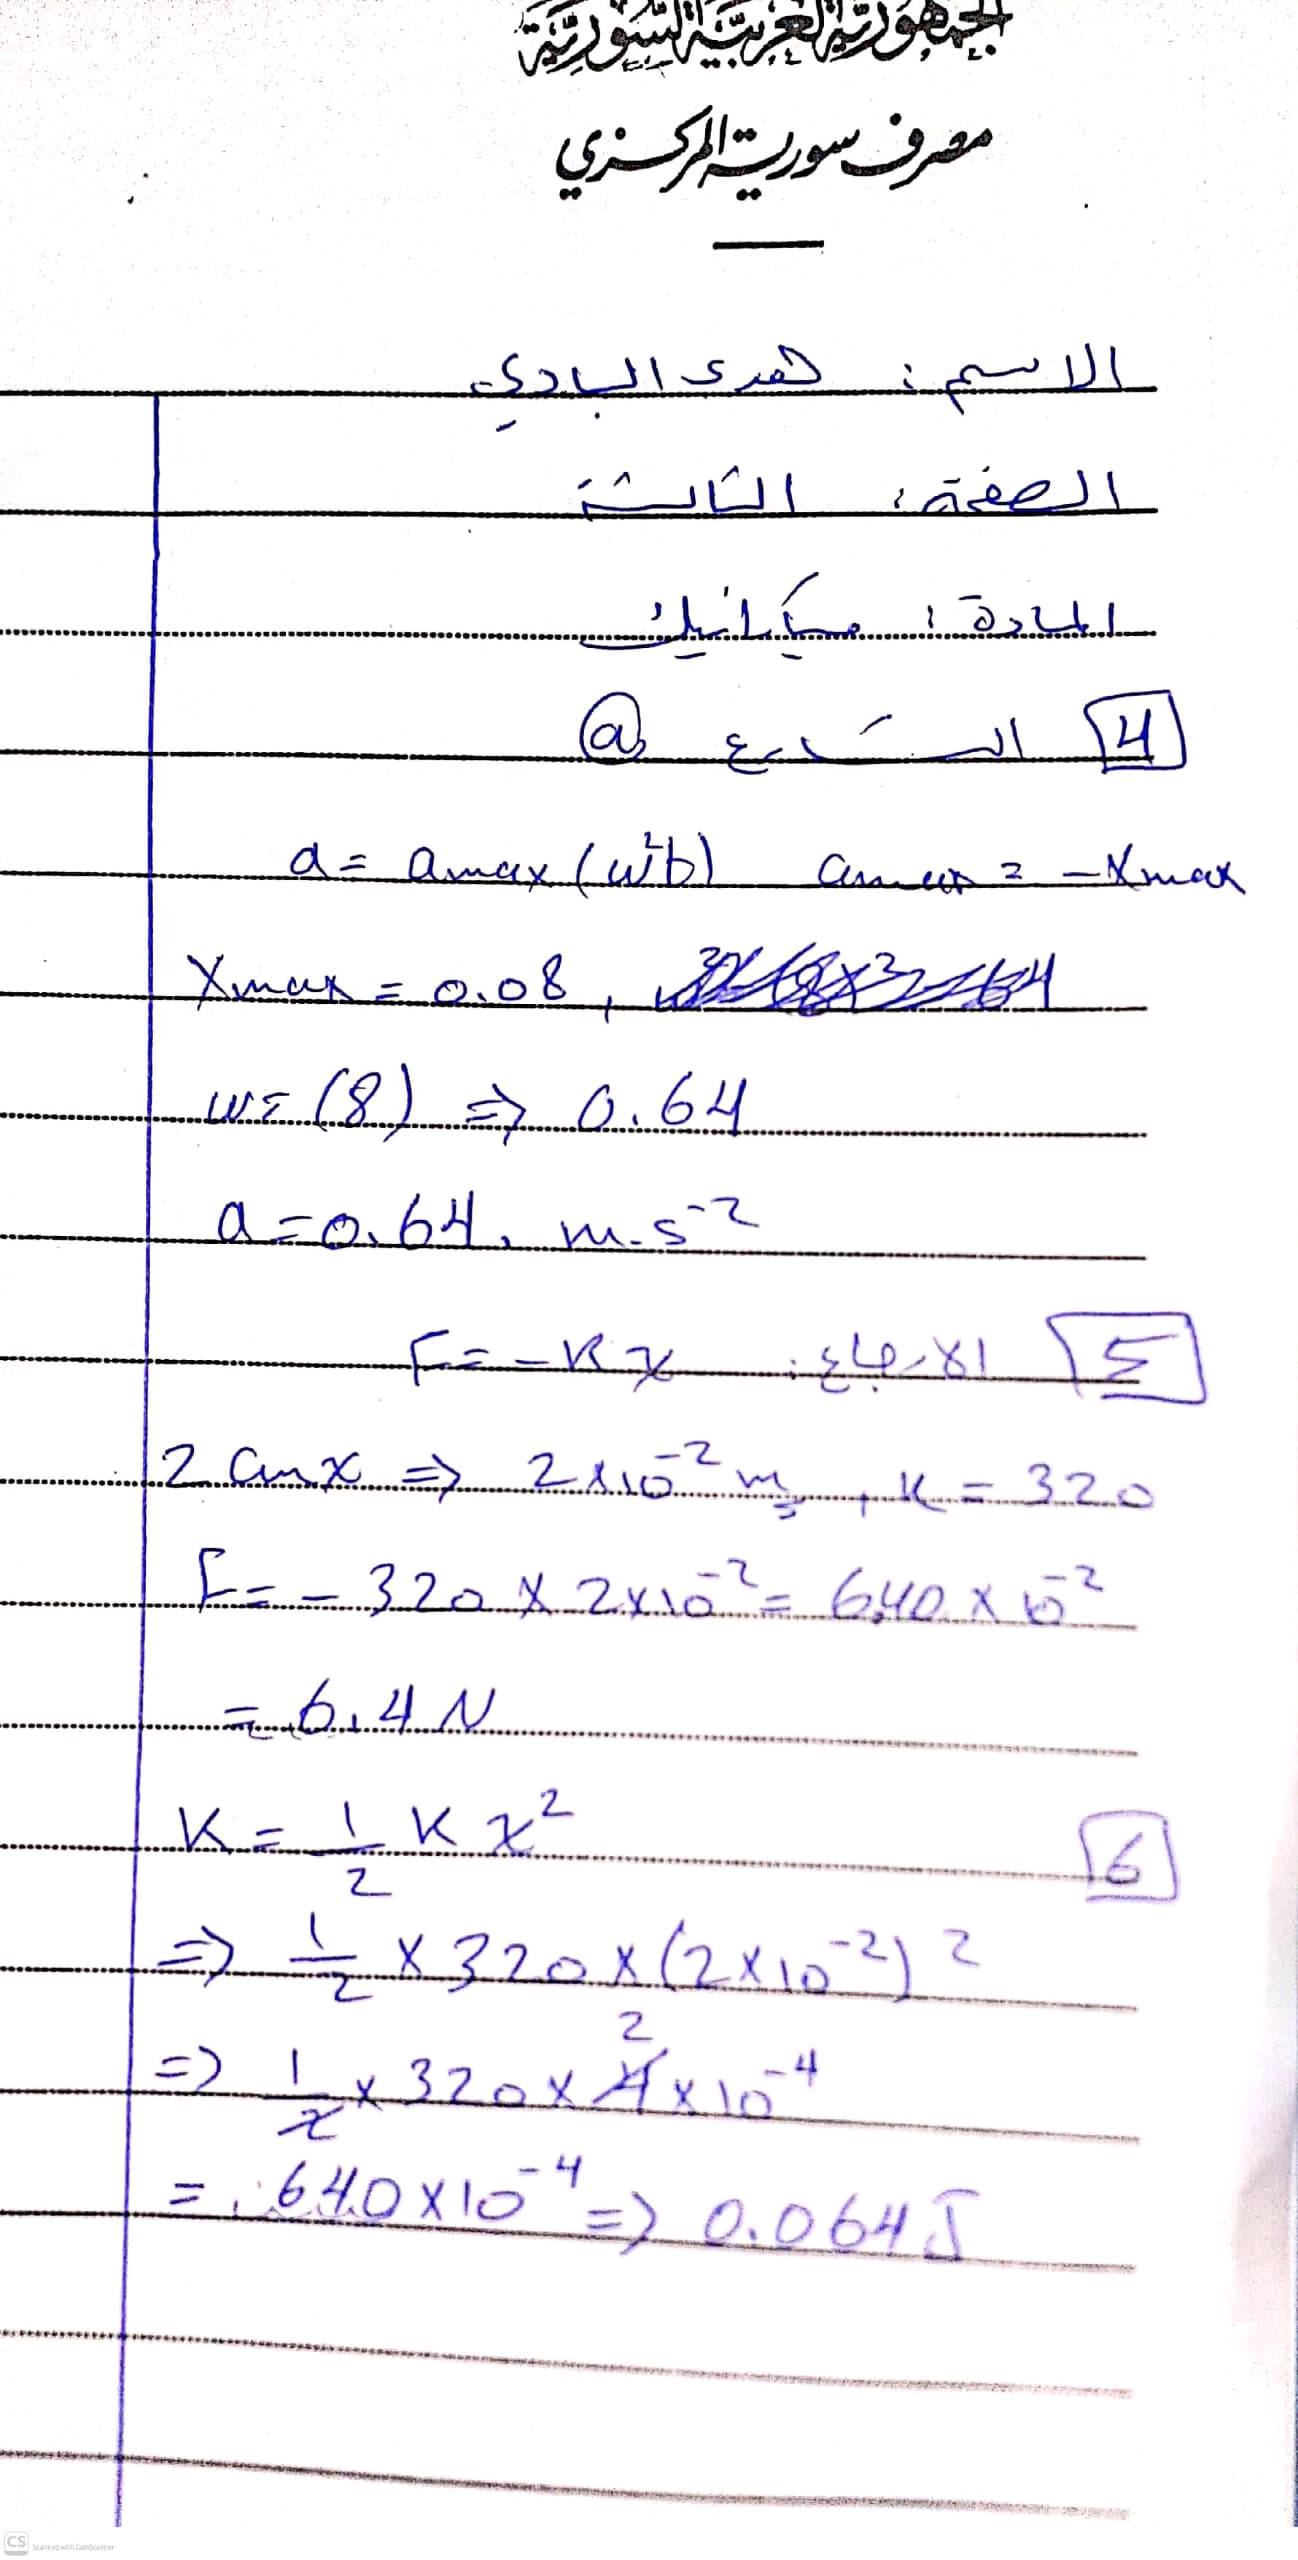 الجمهورية العربية السورية
مصرف سورية المركزي
الاسم : هدى البادي
الصفحة : الثالثة
المادة : ميكانيك
4 التسارع a
a = amax (ω²b) amax = -Xmax
Xmax = 0.08 ,
ω = (8) => 0.64
a = 0.64, m.s-²
5 الارجاع : F = -K x
2 cm x => 2×10-² m , K = 320
F = - 320 × 2×10-² = 640 × 10-²
= 6,4 N
6 K = 1/2 K x²
=> 1/2 × 320 × (2×10-²)²
=> 1/2 × 320 × 4 2 × 10-⁴
= 640×10-⁴ => 0.064 J
CS Scanned with CamScanner